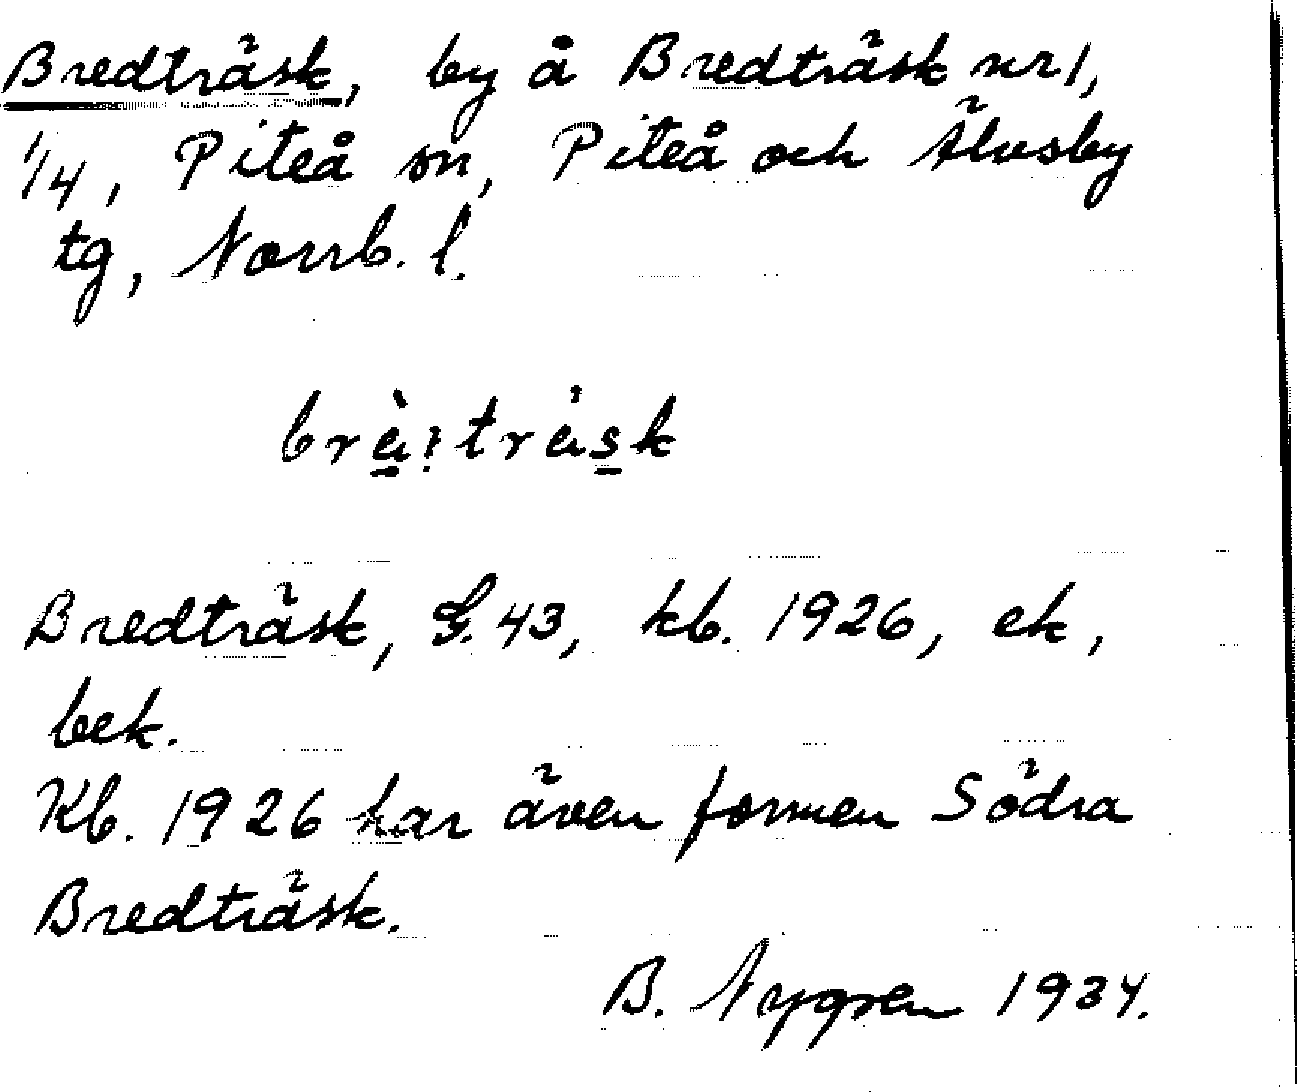 Bredträsk, by å Bredträsk nr 1,
1/4, Piteå sn, Piteå och Älvsby
tg, Norrb. l.
Bredträsk, G. 43, kb. 1926, ek,
bek.
Kb. 1926 har även formen Södra
Bredträsk.
B. Nygren 1934.